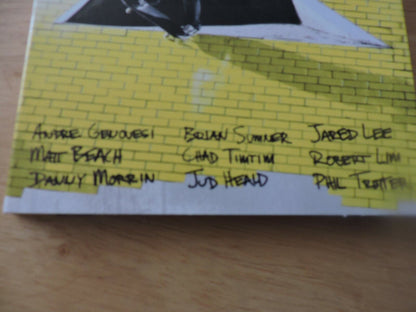 ANDRE GENOVESI BRIAN SUMNER JARED LEE
MATT BEACH CHAD TIMTIM ROBERT LIM
DANNY MORRIN JUD HEALD PHIL TROTTER